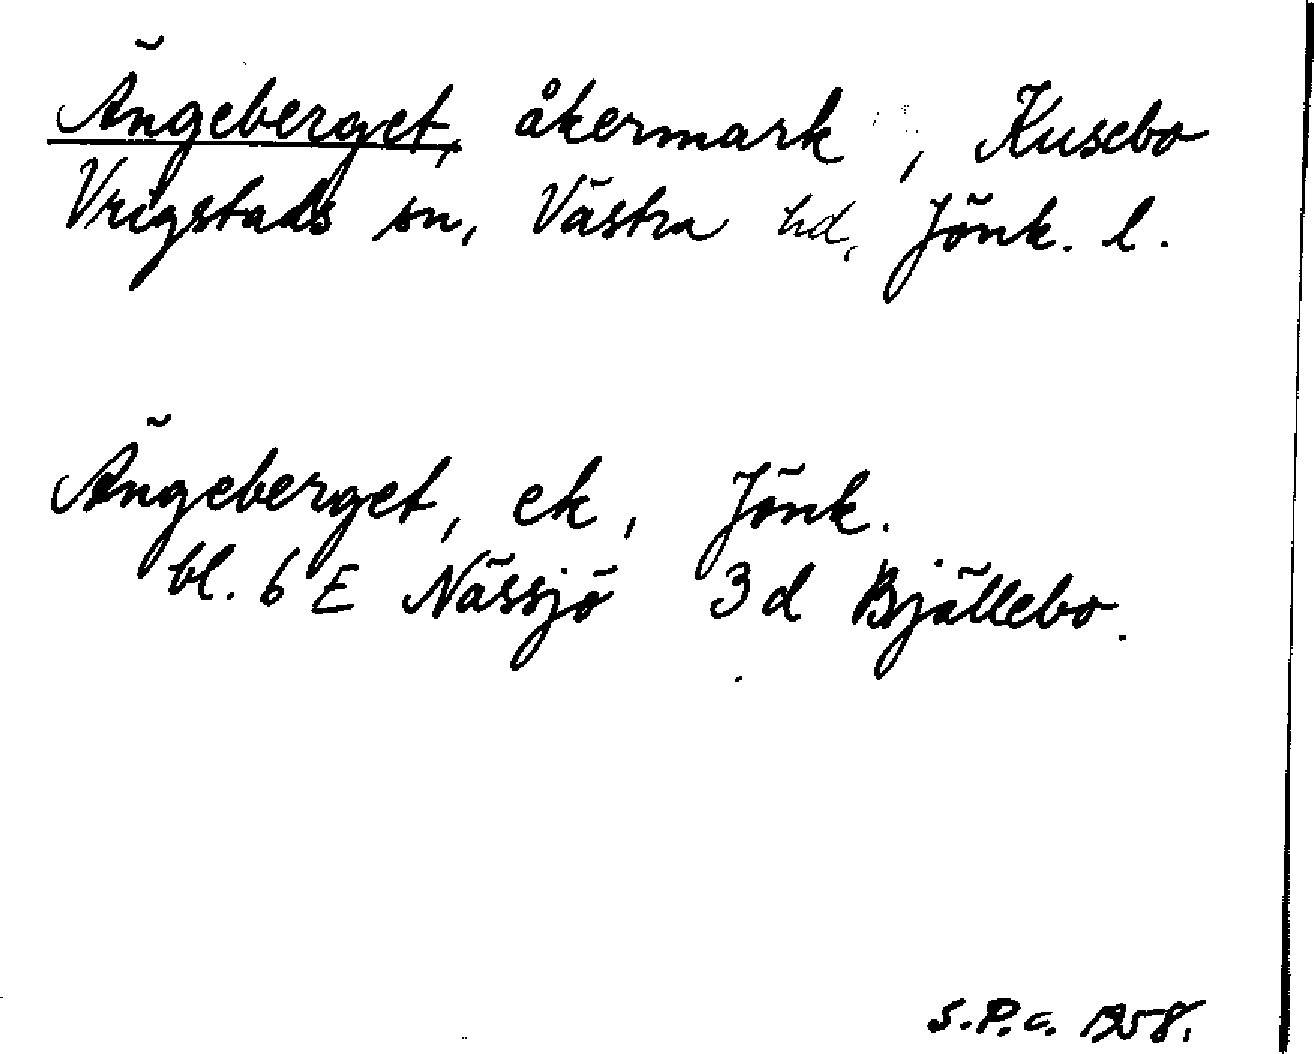 Ängeberget, åkermark, Kusebo
Vrigstads sn, Västra hd, Jönk. l.
Ängeberget, ek, Jönk.
bl. 6 E Nässjö 3d Bjällebo.
S.P.c. 1958.